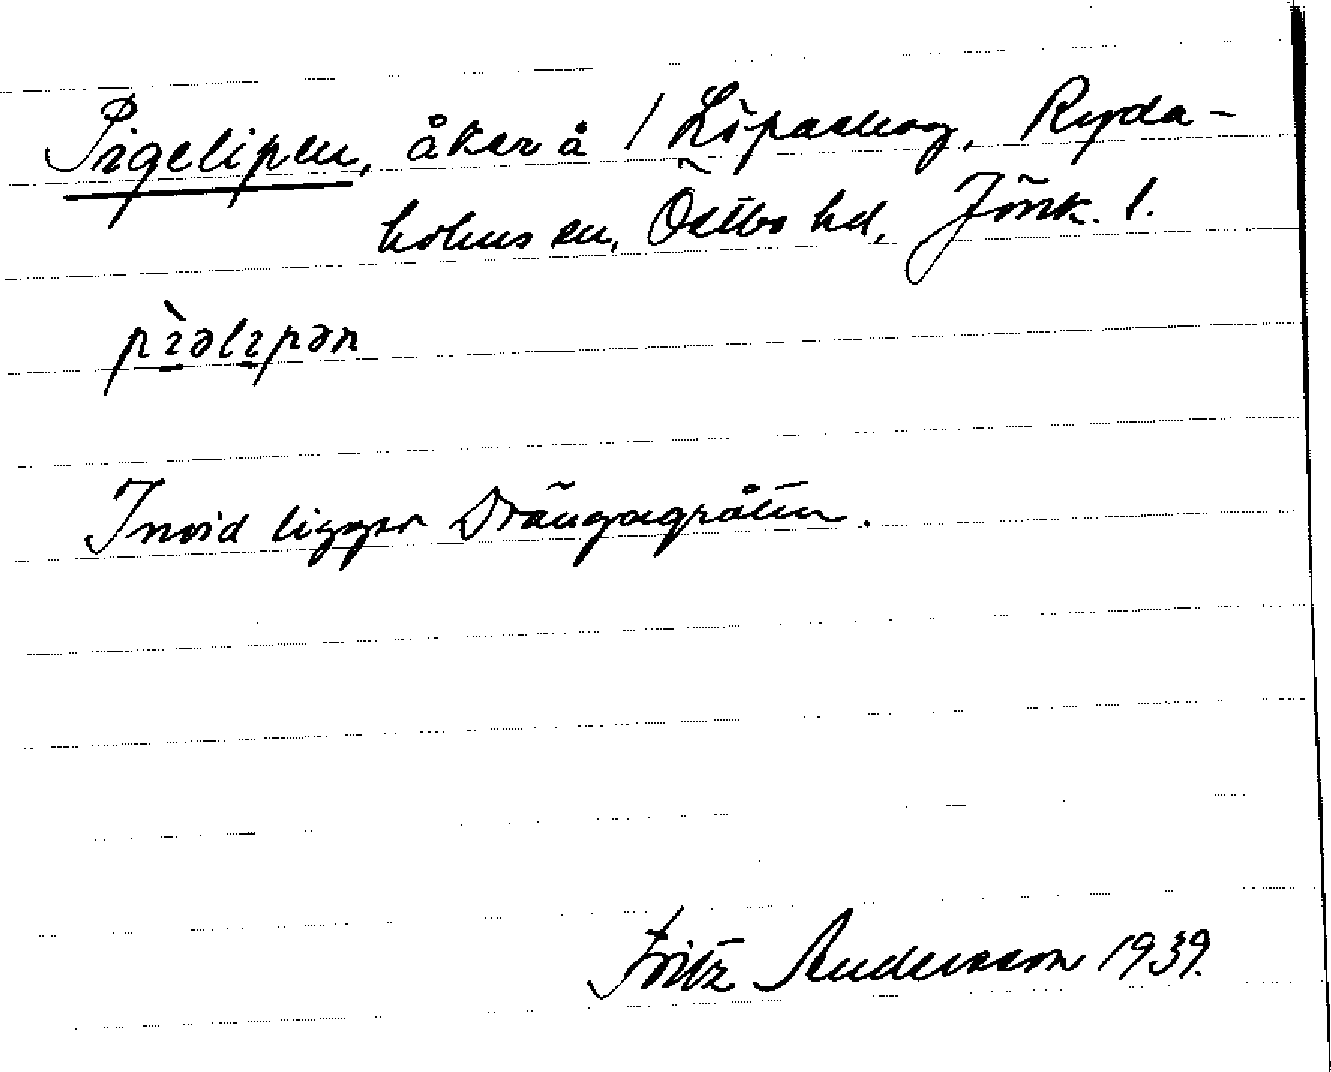 Pigelipen, åker å / Löpaskog, Ryda-
holms sn, Östbo hd, Jönk. l.
pìəlıpən
Invid ligger Drängagråten.
Fritz Andersson 1939.